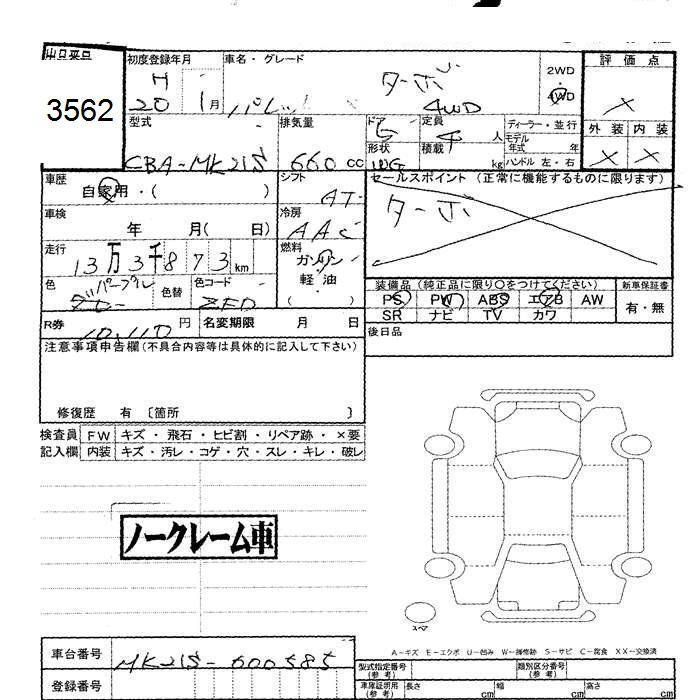 出品番号
3562
初度登録年月
H
20 1月
車名・グレード
ターボ
パレット 4WD
2WD
4WD
評価点
×
外装 内装
× ×
型式
CBA-MK21S
排気量
660 cc
ドア
5
形状
WG
定員
4人
積載 kg
ディーラー・並行
モデル
年式 年
ハンドル 左・右
車歴
自家用・( )
シフト
AT
セールスポイント (正常に機能するものに限ります)
ターボ
車検
年 月( 日)
冷房
AAC
走行
13万3千873km
燃料
ガソリン
軽・油
( )
色
色替
色コード
ZFD
装備品(純正品に限り○をつけてください)
PS PW ABS エアB AW
SR ナビ TV カワ
新車保証書
有・無
R券
10,110円
名変期限 月 日
後日品
注意事項申告欄(不具合内容等は具体的に記入して下さい)
修復歴 有 〔箇所 〕
検査員 FW キズ・飛石・ヒビ割・リペア跡・×要
記入欄 内装 キズ・汚レ・コゲ・穴・スレ・キレ・破レ
ノークレーム車
スペア
A-キズ E-エクボ U-凹み W-補修跡 S-サビ C-腐食 XX-交換済
車台番号
MK21S-600585
登録番号
型式指定番号
(参考)
類別区分番号
(参考)
車庫証明用
(参考)
長さ cm
幅 cm
高さ cm